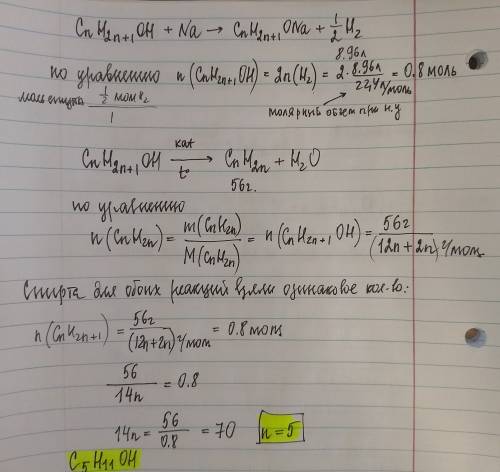 CnH2n+1OH + Na → CnH2n+1ONa + 1/2 H2
8.96л
по уравнению n(CnH2n+1OH) = 2n(H2) = 2·8.96л / 22,4л/моль = 0.8 моль
моль спирта 1/2 моль H2
1
молярный объем при н.у
CnH2n+1OH kat → t° CnH2n + H2O
56г.
по уравнению
n(CnH2n) = m(CnH2n) / M(CnH2n) = n(CnH2n+1OH) = 56г / (12n+2n) г/моль
Спирта для обоих реакций взяли одинаковое кол-во:
n(CnH2n+1) = 56г / (12n+2n) г/моль = 0.8 моль
56 / 14n = 0.8
14n = 56 / 0.8 = 70 n=5
C5H11OH